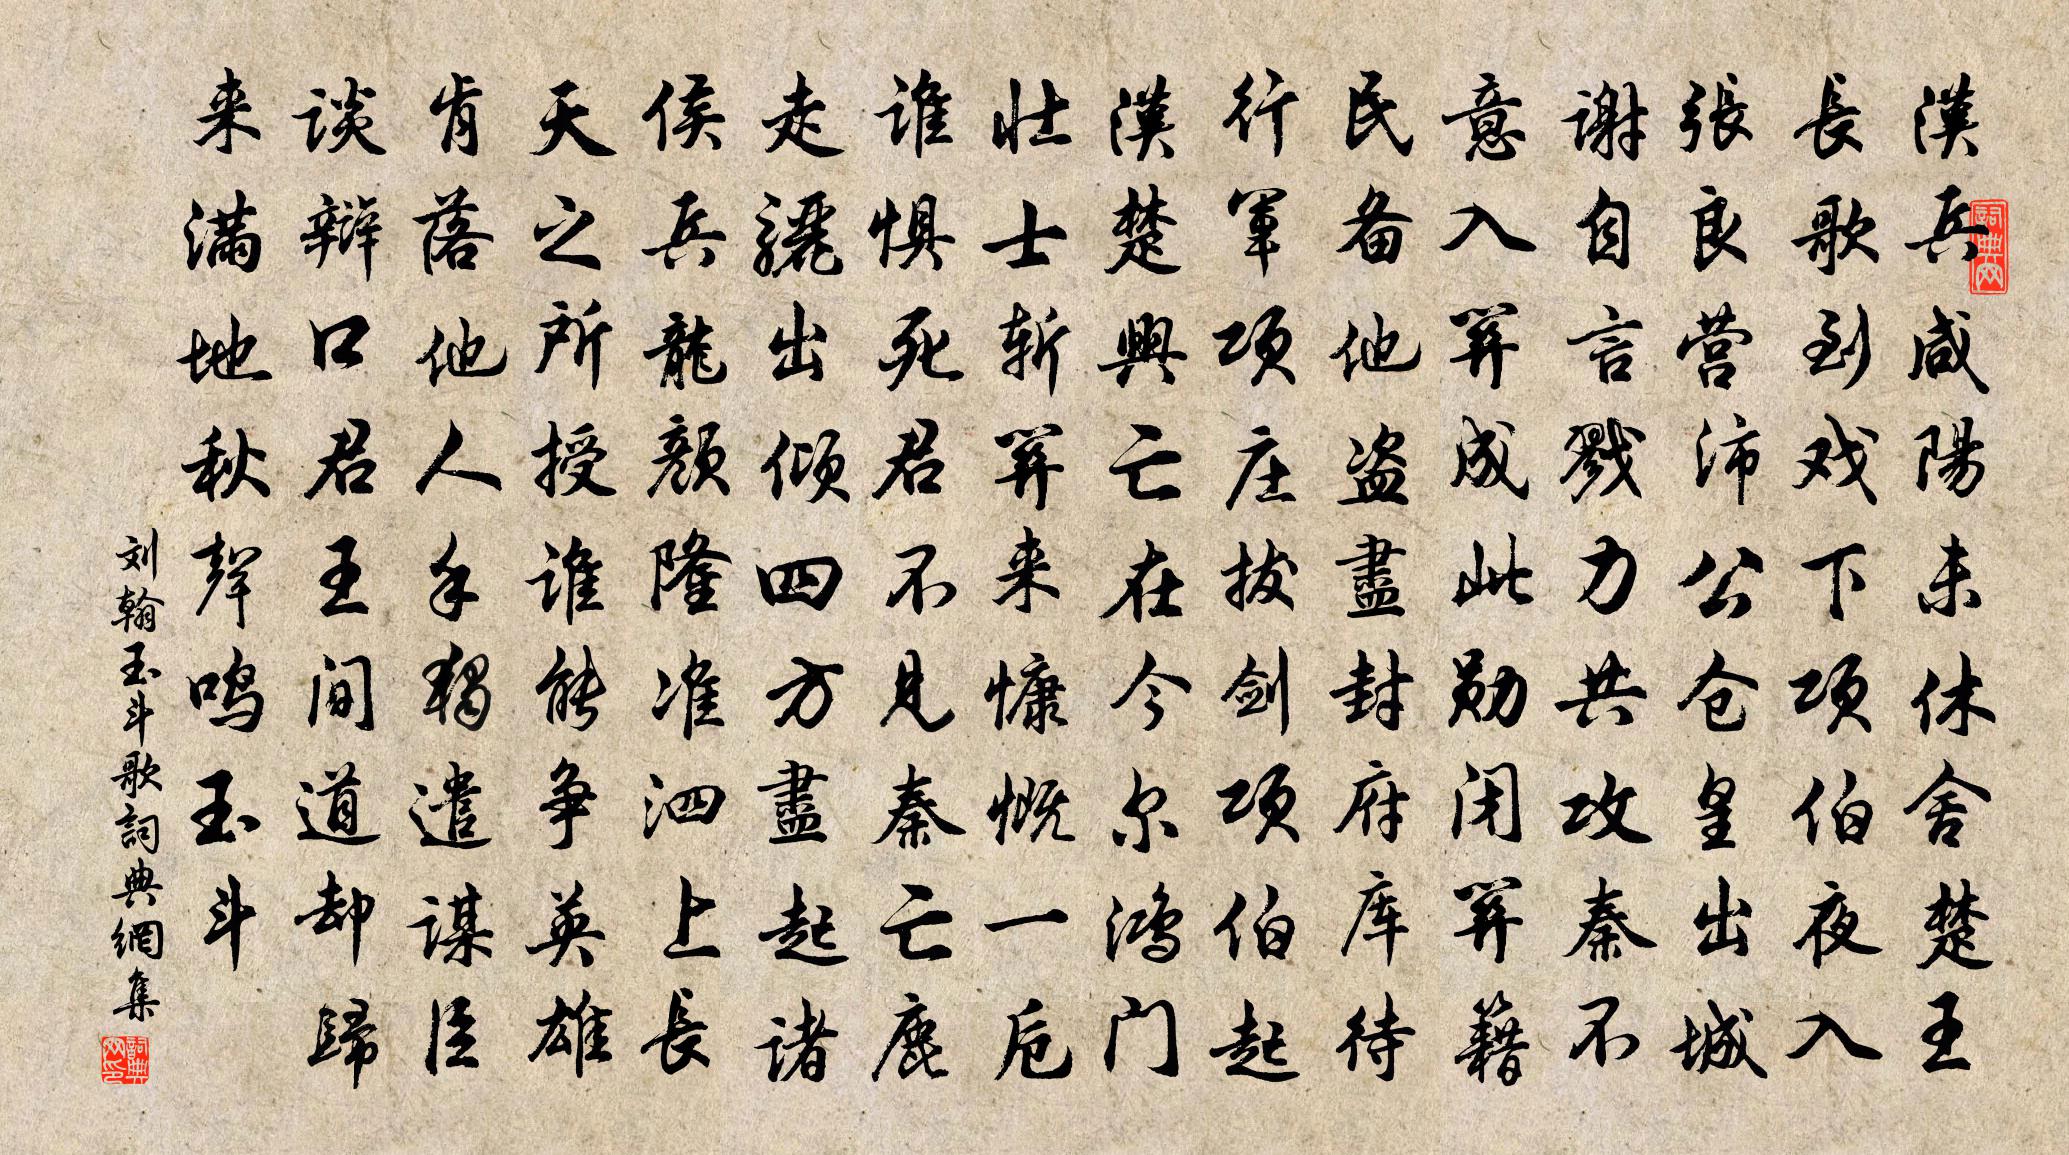 詞典网
漢兵咸陽未休舍楚王
長歌到戏下项伯夜入
張良营沛公仓皇出城
谢自言戮力共攻秦不
意入關成此勋闭關籍
民备他盗盡封府库待
行軍项庄拔剑项伯起
漢楚興亡在今尔鸿门
壮士斩關来慷慨一卮
谁惧死君不見秦亡鹿
走骊出倾四方盡起诸
侯兵龍颜隆准泗上長
天之所授谁能争英雄
肯落他人手獨遣谋臣
谈辩口君王间道却歸
来满地秋聲鸣玉斗
刘翰玉斗歌詞典網集
詞典网印